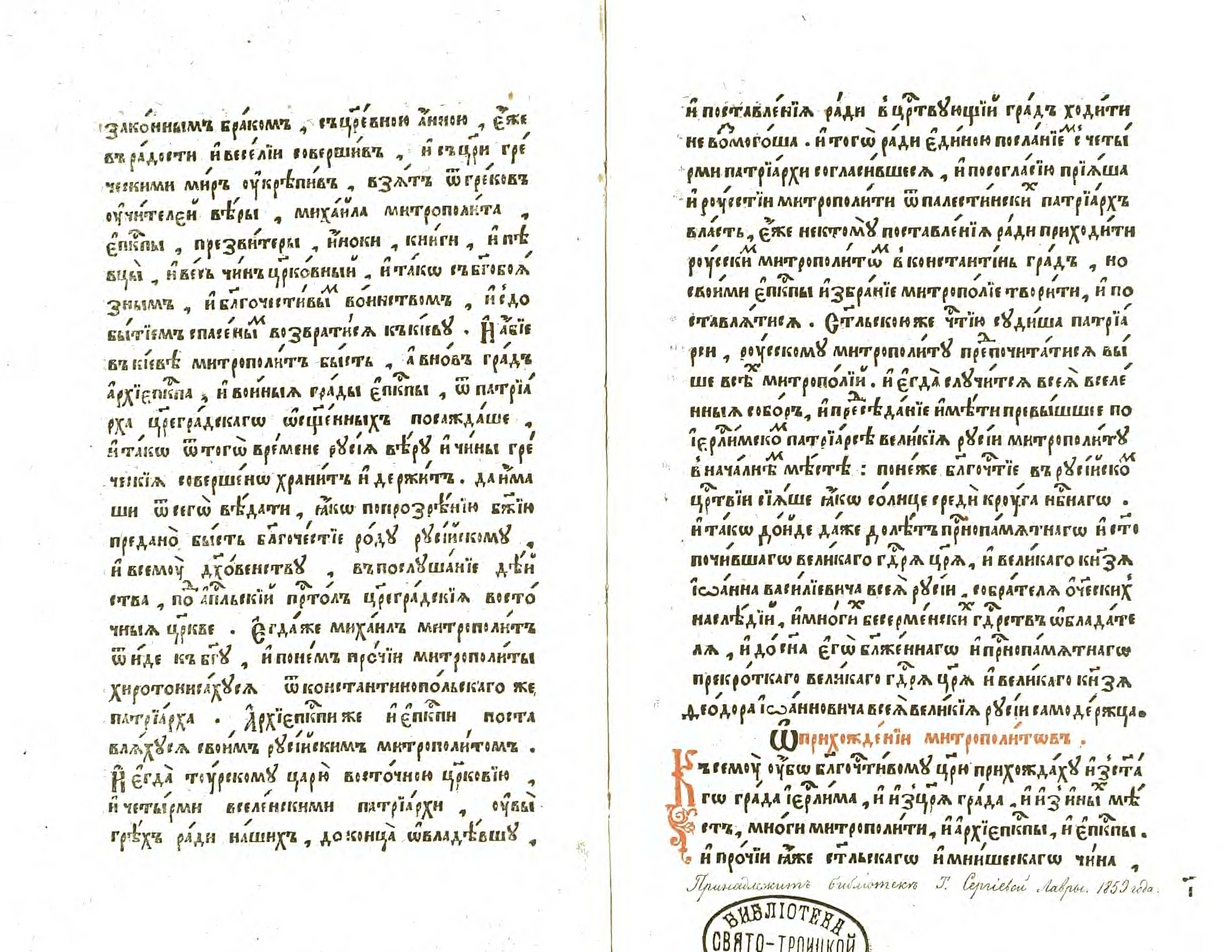 зако́ннымъ бра́комъ , съцр҃е́вною а҆́нною , є҆́же
въра́дости и҆весе́лїи соверши́въ , и҆съцр҃и гре́
ческими ми́ръ оу҆крѣпи́въ , взѧ́тъ ѿгре́ковъ
оу҆чи́телей вѣ́ры , михаи́ла митрополи́та ,
є҆пⷭ҇кпы , презви́теры , и҆́ноки , кни́ги , и҆пѣ
вцы̀ , и҆ве́сь чи́нъ цр҃ко́вный , и҆та́кѡ събг҃обоѧ́
знымъ , и҆бл҃гочести́выⷨ во́инствомъ , и҆съдо
бы́тїемъ спасе́ныⷨ возврати́сѧ къкі́еву . И҆а҆́бїе
въкі́евѣ митрополи́тъ бы́сть , а҆вно́въ гра́дъ
а҆рхїепⷭ҇кпа , и҆во́иныѧ гра́ды є҆пⷭ҇кпы , ѿ патрїа́
рха цр҃егра́дскагѡ ѡ҆сщ҃е́нныхъ посажда́ше ,
и҆та́кѡ ѿтогѡ̀ вре́мене русі́ѧ вѣ́ру и҆чи́ны гре́
ческїѧ соверше́нѡ храни́тъ и҆де́ржитъ . да и҆́ма
ши ѿсегѡ̀ вѣ́дати , ꙗ҆́кѡ попрозрѣ́нїю бж҃їю
пре́дано̀ бы́сть бл҃гоче́стїе ро́ду русі́йскому ,
и҆всемоу̀ дх҃ове́нству , въпослуша́нїе дѣ́й
ства , поⷣ а҆пⷭ҇льскїй прⷭ҇то́лъ цр҃егра́дскїѧ восто́
чныѧ цр҃кве . Є҆гда́же михаи́лъ митрополи́тъ
ѿи́де къбг҃у , и҆поне́мъ про́чїи митрополи́ты
хиротониса́хусѧ ѿконстантинопо́льскаго же
патрїа́рха . А҆рхїепⷭ҇кпи же и҆є҆пⷭ҇кпи поста
влѧ́хусѧ свои́мъ русі́йскимъ митрополи́томъ .
И҆є҆гда̀ ту́рскому царю̀ восто́чною цр҃ковїю ,
и҆четы́рми вселе́нскими патрїа́рхи , оу҆вы̀
грѣ́хъ ра́ди на́шихъ , до конца̀ ѡ҆владѣ́вшу ,
и҆поставле́нїѧ ра́ди в̾црⷭ҇твующїй гра́дъ ходи́ти
не во́ⷥмого́ша . и҆тогѡ̀ ра́ди є҆ди́ною посла́нїеⷨ с̾ четы́
рми патрїа́рхи согласи́вшесѧ , и҆посогла́сїю прїѧ́ша
и҆роусті́и митрополи́ти ѿпалести́нскиⷯ патрїа́рхъ
вла́сть , є҆́же нектому̀ поставле́нїѧ ра́ди приходи́ти
роу́сскиⷨ митрополи́тѡⷨ в̾ константі́нь гра́дъ , но
свои́ми є҆пⷭ҇кпы и҆збра́нїе митропо́лїе твори́ти , и҆ по
ставлѧ́тисѧ . Ст҃льскою же чⷭ҇тїю суди́ша патрїа́
рси , роу́сскому митрополи́ту преⷣпочита́тисѧ вы́
ше всѣⷯ митропо́лїй . и҆ є҆гда̀ случи́тсѧ всеѧ̀ вселе́
нныѧ собо́ръ , и҆преⷣсѣда́нїе и҆мѣ́ти превы́шшее по
і҆ерⷭ҇ли́мскоⷨ патрїа́рсѣ вели́кїѧ русі́и митрополи́ту
в̾нача́лнѣⷨ мѣ́стѣ : поне́же бл҃гочⷭ҇тїе въ русі́йскоⷨ
црⷭ҇твїи сїѧ́ше ꙗ҆́кѡ со́лнце средѝ кроу́га нбⷭ҇нагѡ .
и҆та́кѡ до́йде да́же до лѣ́тъ прⷭ҇нопа́мѧтнагѡ и҆ ст҃о
почи́вшаго вели́каго гдⷭ҇рѧ цр҃ѧ̀ , и҆ вели́каго кн҃зѧ
і҆ѡа́нна васи́лїевича всеѧ̀ русі́и . собра́телѧ ѻ҆те́ческихъ
наслѣ́дїй , и҆мно́гиⷯ бесерме́нскиⷯ гдⷭ҇рствъ ѡ҆блада́те
лѧ , и҆ до сн҃а є҆гѡ̀ бл҃же́ннагѡ и҆прⷭ҇нопа́мѧтнагѡ
прекро́ткаго вели́каго гдⷭ҇рѧ цр҃ѧ̀ и҆ вели́каго кн҃зѧ
Ѳео́дора і҆ѡа́нновича всеѧ̀ вели́кїѧ русі́и самоде́ржца .
Ѡ҆прихожде́нїи митрополи́тѡвъ .
Къ семоу̀ оу҆́бѡ бл҃гочⷭ҇ти́вому цр҃ю прихожда́ху и҆зст҃а́
гѡ гра́да і҆ерⷭ҇ли́ма , и҆ и҆зцр҃ѧ гра́да , и҆ и҆з̾ и҆ныⷯ мѣ́
стъ , мно́ги митрополи́ти , и҆ а҆рхїепⷭ҇кпы , и҆ є҆пⷭ҇кпы .
и҆ про́чїи ꙗ҆̀же ст҃льскагѡ и҆мни́шескагѡ чи́на ,
Принадлежитъ библіотекѣ Т. Сергіевой Лавры. 1859 года.
БИБЛІОТЕКА
СВЯТО-ТРОИЦКОЙ